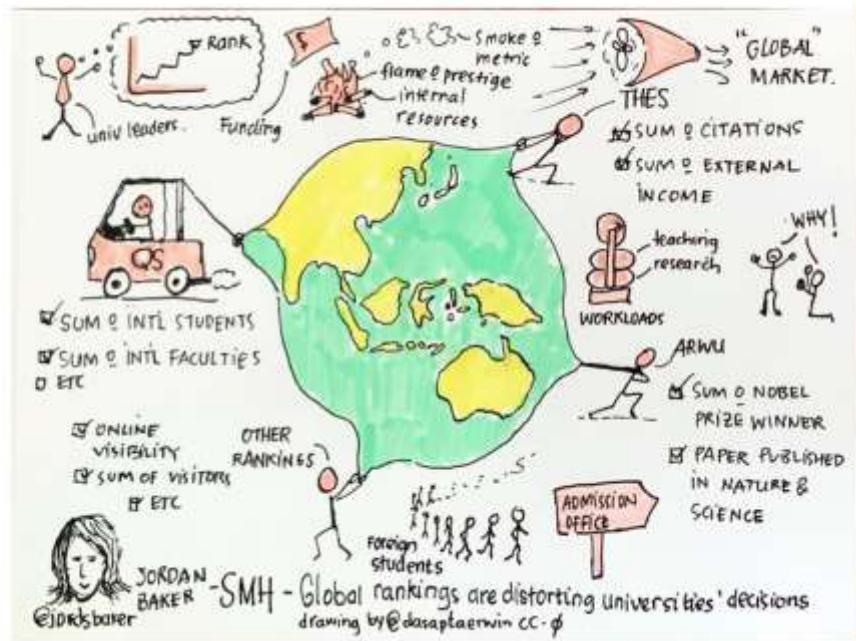 RANK
univ leaders.
Funding
$
smoke &
metric
flame & prestige
internal
resources
"GLOBAL"
MARKET.
THES
SUM Q CITATIONS
SUM Q EXTERNAL
INCOME
QS
SUM Q INTL STUDENTS
SUM Q INTL FACULTIES
ETC
teaching
research
WORKLOADS
WHY!
ARWU
SUM Q NOBEL
PRIZE WINNER
PAPER PUBLISHED
IN NATURE &
SCIENCE
ONLINE
VISIBILITY
SUM OF VISITORS
ETC
OTHER
RANKINGS
foreign
students
ADMISSION
OFFICE
JORDAN
BAKER
@jordsbaker
-SMH - Global rankings are distorting universities' decisions
drawing by @dasaptaerwin CC-0